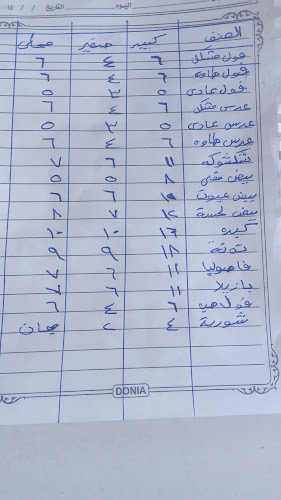 اليوم التاريخ / / ١٤
الصنف كبير صغير محلي
فول مشكل ٦ ٤ ٦
فول طاوه ٦ ٤ ٦
فول عادي ٥ ٣ ٥
عدس مشكل ٦ ٤ ٦
عدس عادي ٥ ٣ ٥
عدس طاوه ٦ ٤ ٦
شكشوكه ١١ ٦ ٧
بيض مقلي ٨ ٥ ٥
بيض عيون ١٠ ٦ ٦
بيض ١٢ ٧ ٨
كبده ١٦ ١٠ ١٠
تونة ١٨ ٩ ٩
فاصوليا ١١ ٦ ٧
بازيلا ١١ ٦ ٧
فول حب ٦ ٤ ٦
شوربة ٤ ٢ مجان
DONIA